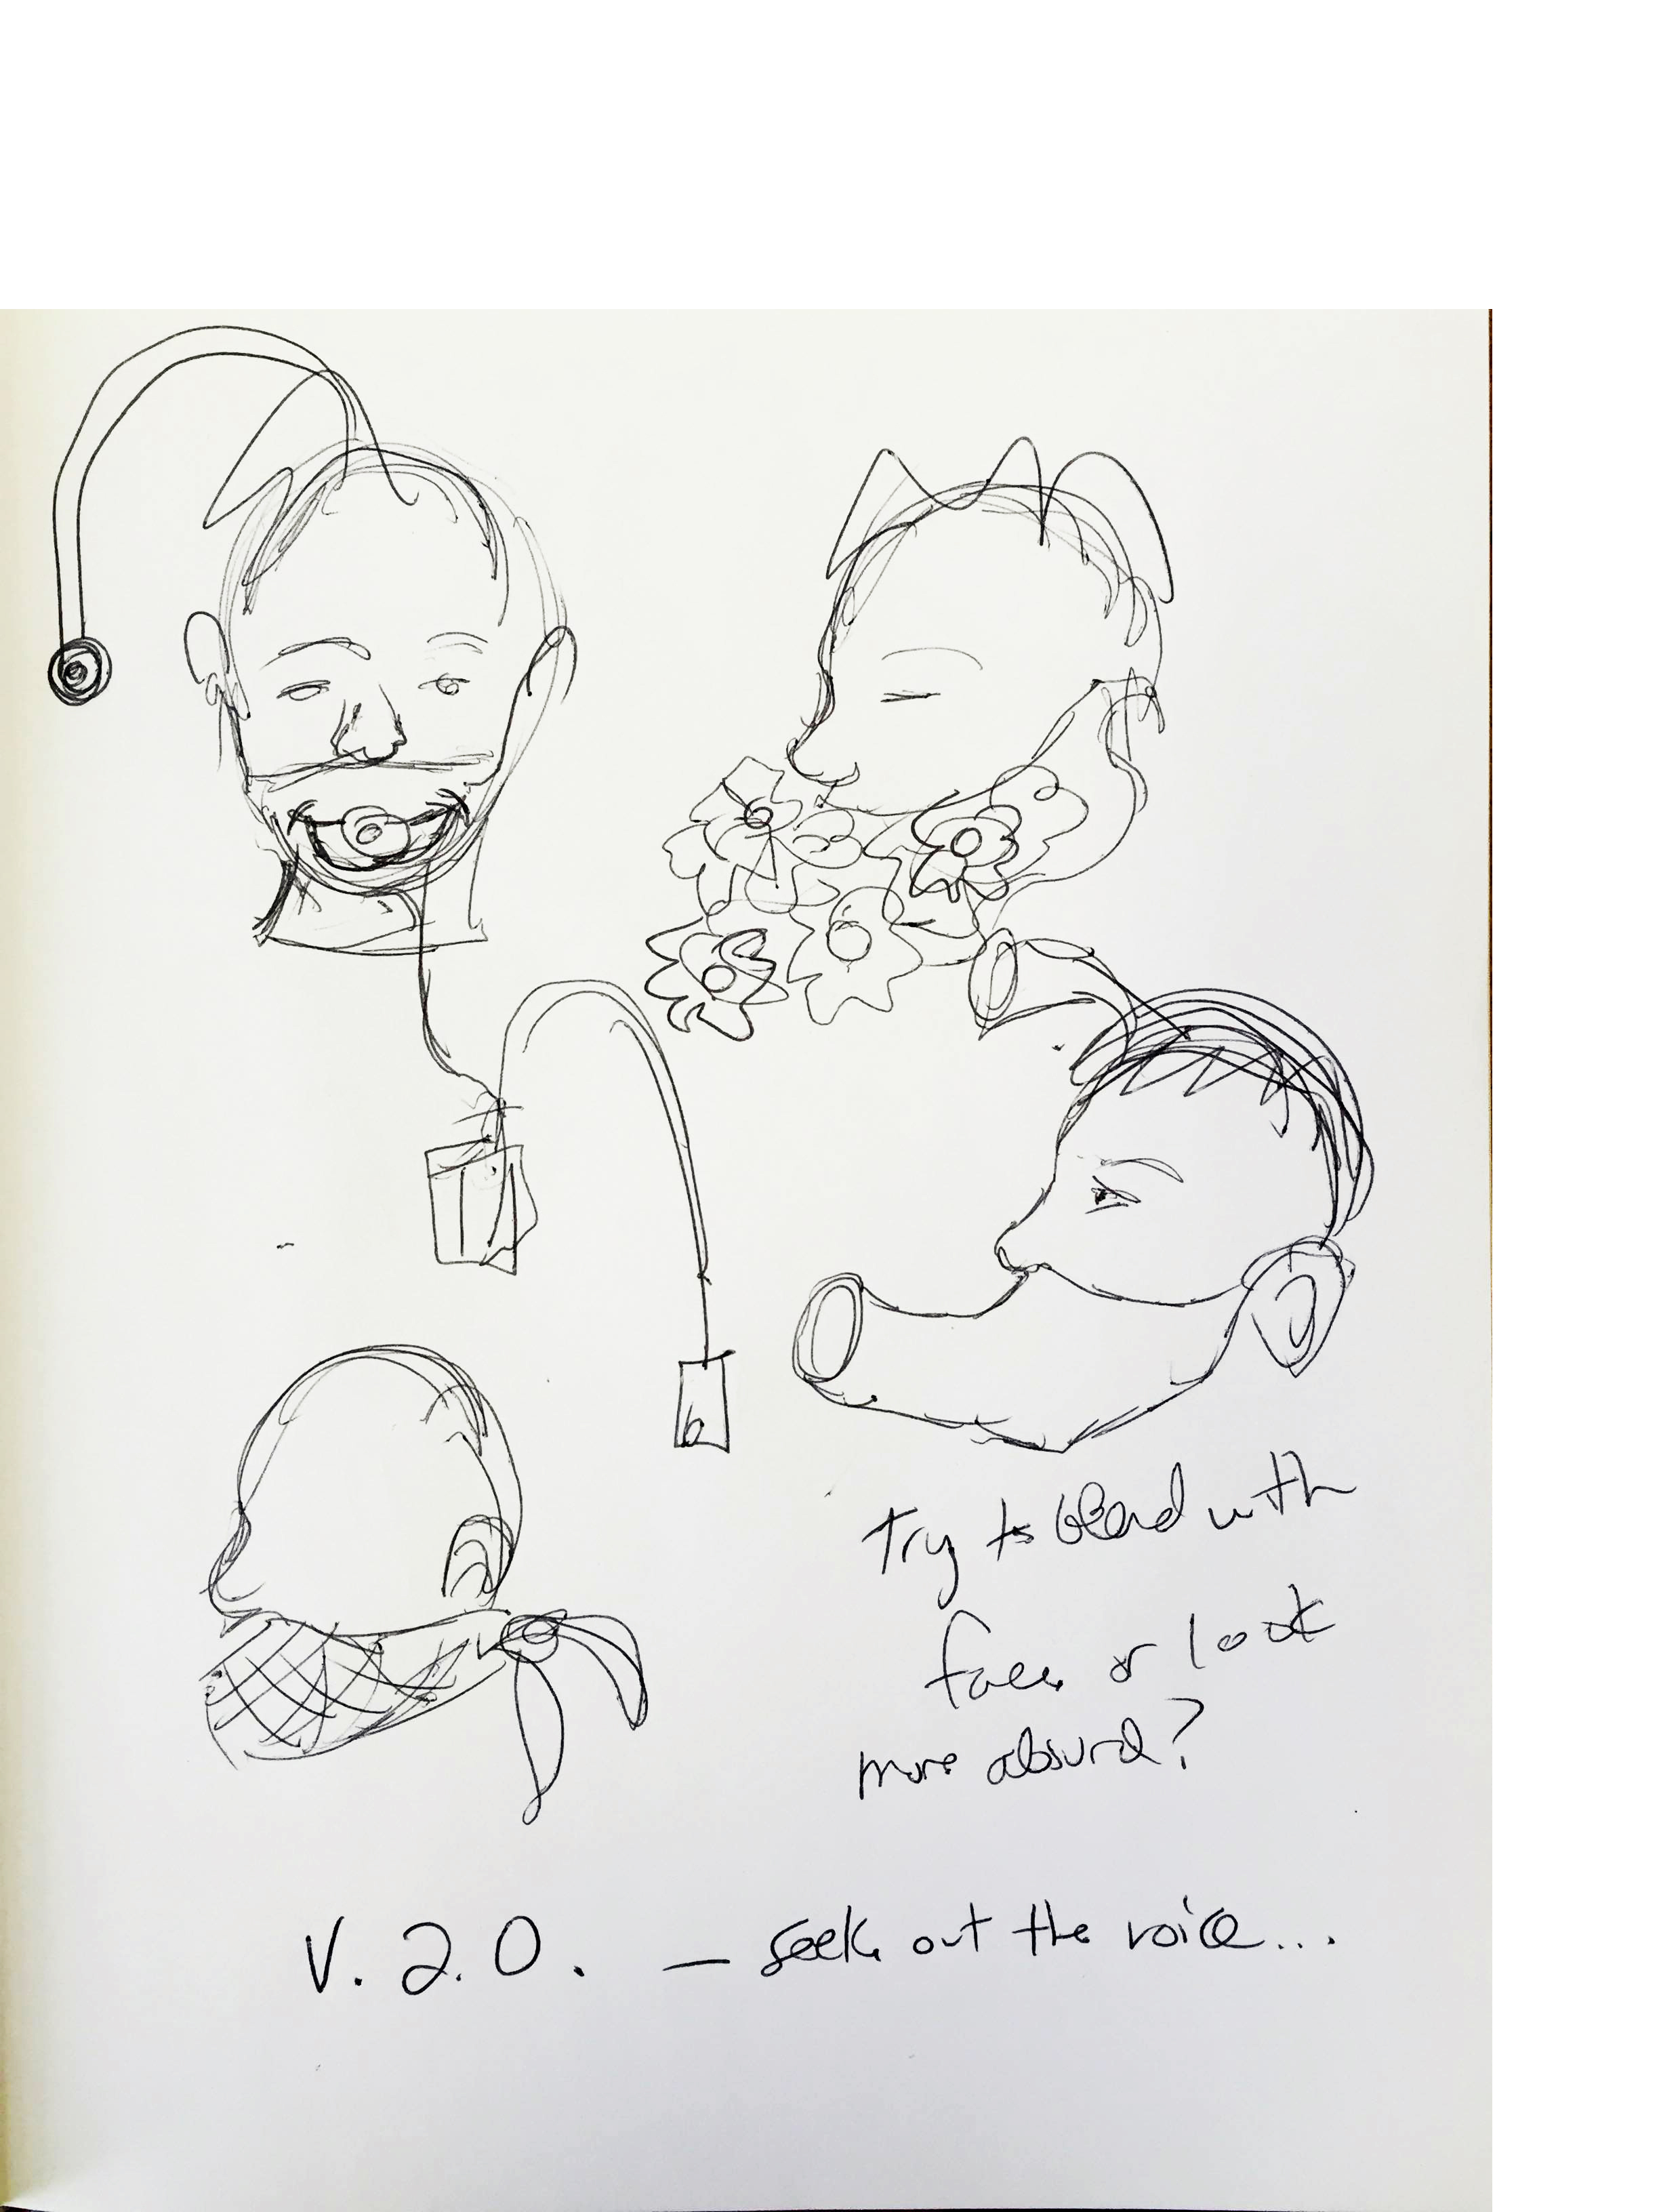 try to blend with
face or look
more absurd?
V. 2.0. — seek out the voice...